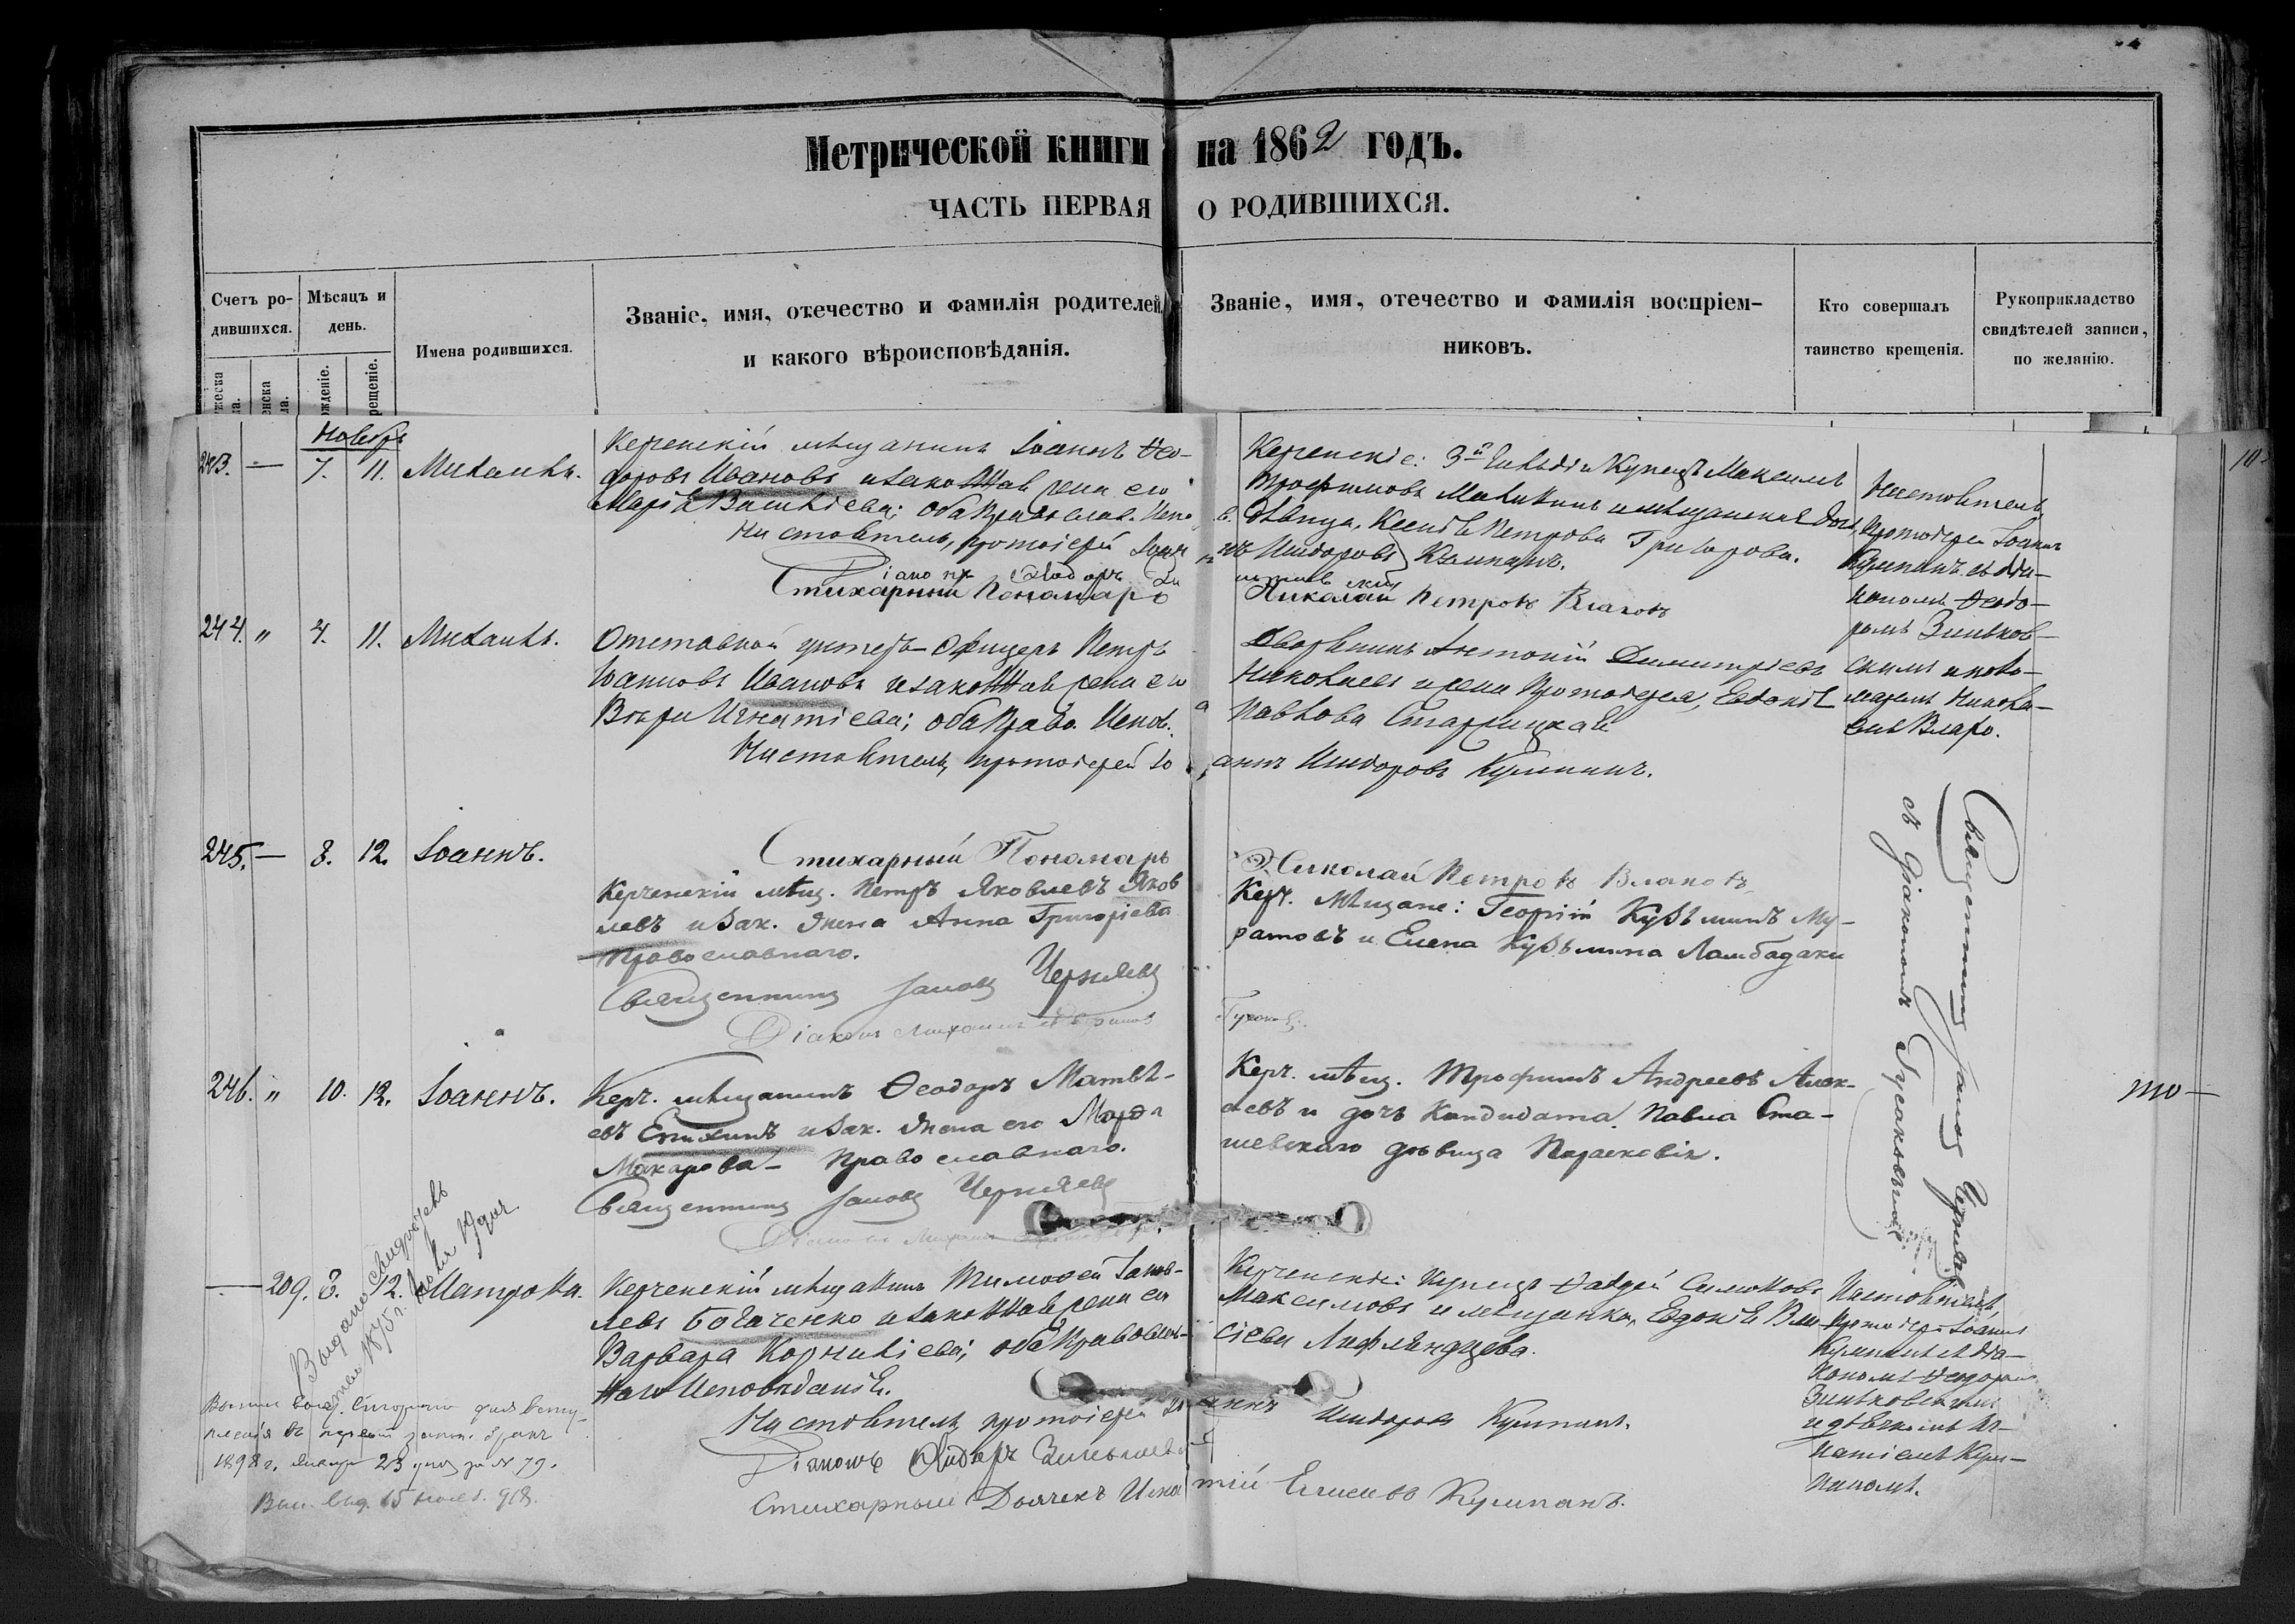 Метрической книги на 1862 годъ.
ЧАСТЬ ПЕРВАЯ О РОДИВШИХСЯ.
Счетъ ро-
дившихся.
Мѣсяцъ и
день.
Имена родившихся.
Званіе, имя, отечество и фамилія родителей,
и какого вѣроисповѣданія.
Званіе, имя, отечество и фамилія воспріем-
никовъ.
Кто совершалъ
таинство крещенія.
Рукоприкладство
свидѣтелей записи,
по желанію.
Ноябрь
243. — 7. 11. Михаилъ.
Керченскій мѣщанинъ Іоаннъ Ѳео-
доровъ Ивановъ и законная жена его
Марія Василіева; оба Православ. Испо
в.
Настоятель, протоіерей Іоан
нъ Исидоровъ Кумпанъ.
Стихарный Пономарь
Николай Петровъ Влаховъ
Керченскіе: 3й гильдіи Купецъ Максимъ
Трофимовъ
дѣвица, Ксенія Петрова Григорова.
Настоятель,
Протоіерей Іоаннъ
Кумпанъ съ діа-
кономъ Ѳеодо-
ромъ Зиньков-
скимъ и поно-
маремъ Никола-
емъ Влахо.
244. " 4. 11. Михаилъ.
Отставной унтеръ-офицеръ Петръ
Іоанновъ Ивановъ и законная жена его
Вѣра Игнатіева; оба Право. Испов.
Настоятель, протоіерей Іо
аннъ Исидоровъ Кумпанъ.
Дворянинъ Антоній Димитріевъ
Николаевъ и жена Протоіерея, Евдокія
Павлова Старицкая
245. — 8. 12. Іоаннъ.
Стихарный Пономарь
Николай Петровъ Влаховъ
Керченскій мѣщ. Петръ Яковлевъ Яков
левъ и зак. жена Анна Григоріева
Православнаго.
Священникъ Іаковъ Черняевъ
Діаконъ Михаилъ
Керч. Мѣщане: Георгій Кузьминъ Му-
ратовъ и Елена Кузьмина Ламбадаки
Священникъ Іаковъ Черняевъ
съ Діакономъ
246. " 10. 12. Іоаннъ.
Керч. мѣщанинъ Ѳеодоръ Матвѣ-
евъ Епихинъ и зак. жена его Марѳа
Макарова — Православнаго.
Священникъ Іаковъ Черняевъ
Діаконъ Михаилъ
Керч. мѣщ. Трофимъ Андреевъ Алек-
сѣевъ и дочь Кандидата Павла Ста-
шевскаго дѣвица Параскевія.
то —
— 209. 8. 12. Матрона.
Керченскій мѣщанинъ Тимоѳей Іаков-
левъ Богаченко и законная жена его
Варвара Корниліева; оба Православ-
наго Исповѣданія.
Настоятель протоіерей Іоаннъ Исидоровъ Кумпанъ.
Діаконъ Ѳеодоръ Зиньковскій
Стихарный Дьячекъ Игнатій Елисеевъ Кумпанъ.
Керченскіе: Купецъ Ѳаддей Симоновъ
Максимовъ и мѣщанка, Евдокія Васи-
сіева Лифляндцева.
Настоятель,
Протоіерей Іоаннъ
Кумпанъ съ діа-
кономъ Ѳеодоромъ
Зиньковскимъ
и дьячкомъ Иг-
натіемъ Кум-
паномъ.
Выдано свидѣтель
1875 г. Іюля 19 дня
1898 г. Января 23 дня за № 79.